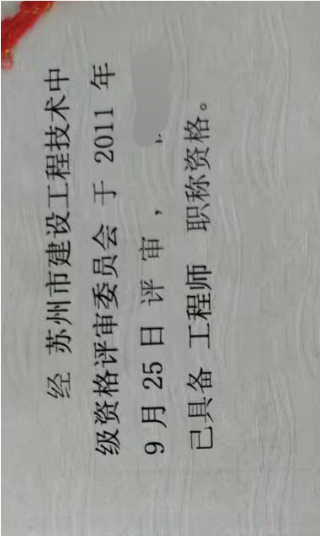 经 苏州市建设工程技术中
级资格评审委员会 于 2011 年
9 月 25 日 评 审 ，
已具备 工程师 职称资格。